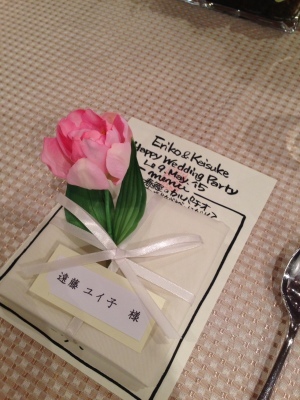 Eriko & Keisuke
Happy Wedding Party
9. May. 15
menu
遠藤 ユイ子 様